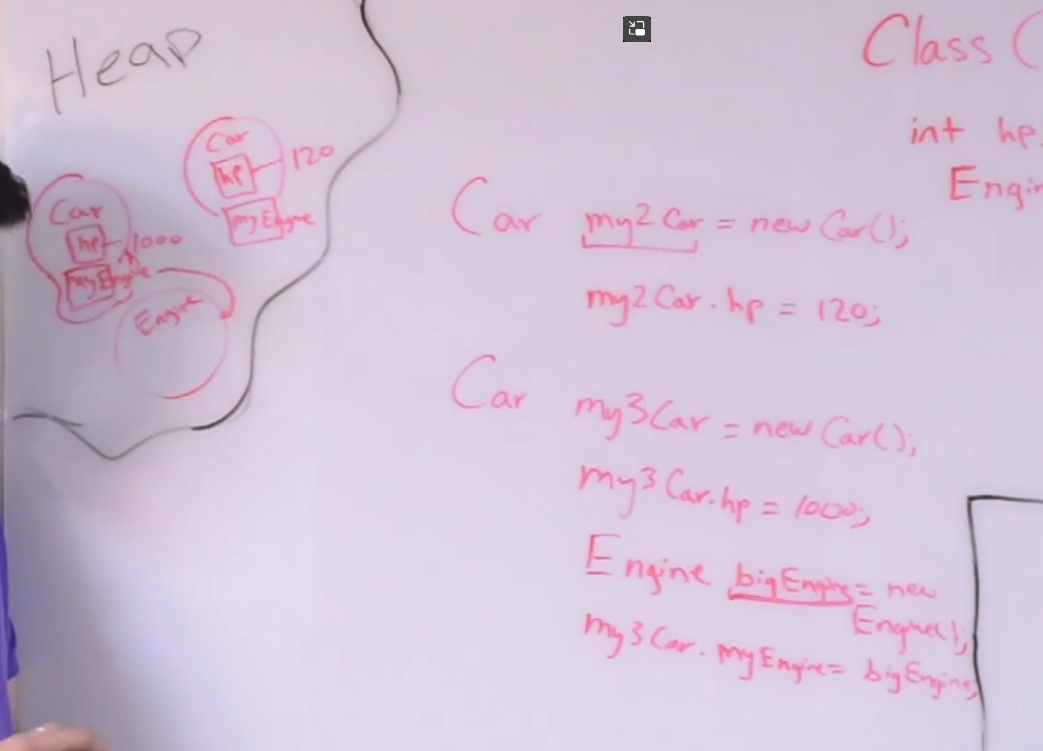 Heap
Car
hp 120
myEngine
Car
hp 1000
myEngine
Engine
Class C
int hp
Engin
Car my2Car = new Car();
my2Car.hp = 120;
Car my3Car = new Car();
my3Car.hp = 1000;
Engine bigEngine = new
Engine();
my3Car.myEngine = bigEngine;